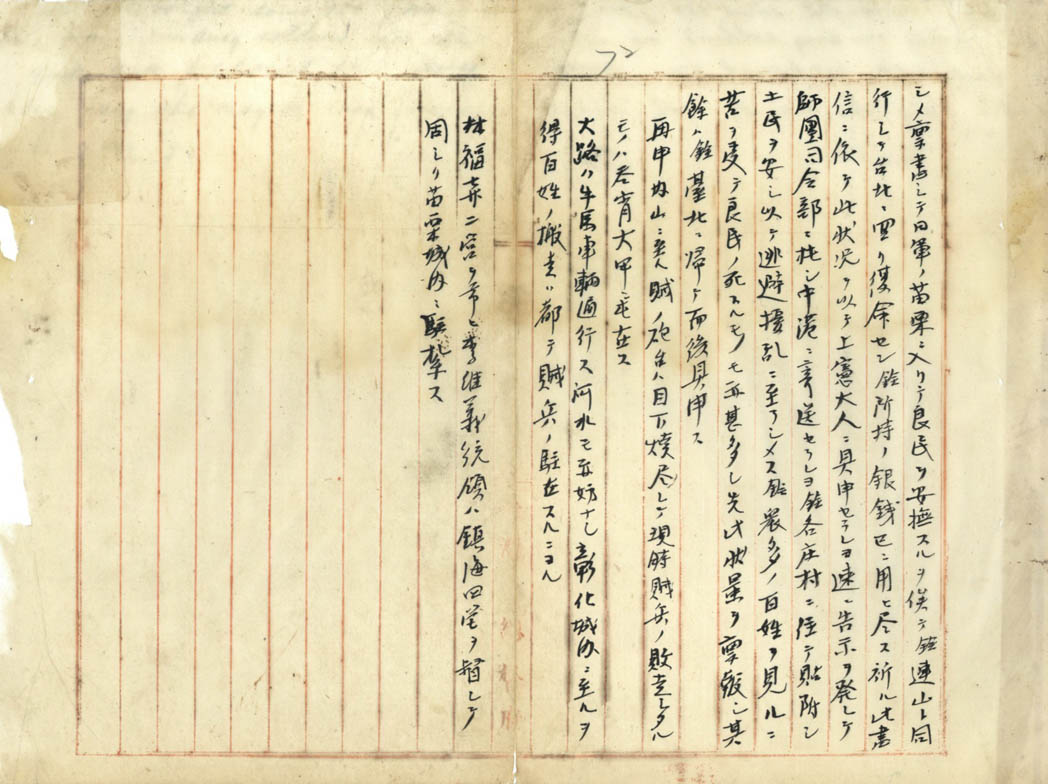 シメ稟書シテ日軍ノ苗栗ニ入リテ良民ヲ安撫スルヲ俟テ銓連山ト同
行シテ台北ニ回リ復命セン銓所持ノ銀銭已ニ用ヒ尽ス祈ル此書
信ニ依テ此状況ヲ以テ上憲大人ニ具申セラレヨ速ニ告示ヲ発シテ
師團司令部ニ托シ中港ニ寄送セラレヨ銓各庄村ニ往テ貼附シ
土民ヲ安シ以テ逃避擾乱ニ至ラシメス銓衆多ノ百姓ヲ見ルニ
苦ヲ受テ良民ノ死スルモノモ亦甚多シ先ツ状景ヲ稟報シ其
餘ハ銓臺北ニ帰テ面後具申ス
再申 山ニ 賊ノ砲台ハ目下焼尽シテ現時賊兵ノ敗走シタル
モノハ 大甲ニ屯在ス
大路ハ牛馬車輌通行ス河水モ亦妨ナシ彰化城内ニ至ルヲ
得百姓ノ搬走ハ都テ賊兵ノ駐在スルニヨル
林福喜二営ヲ帯ヒ李惟義統領ハ鎮海四営ヲ督シテ
同シク苗栗城内ニ駐紮ス